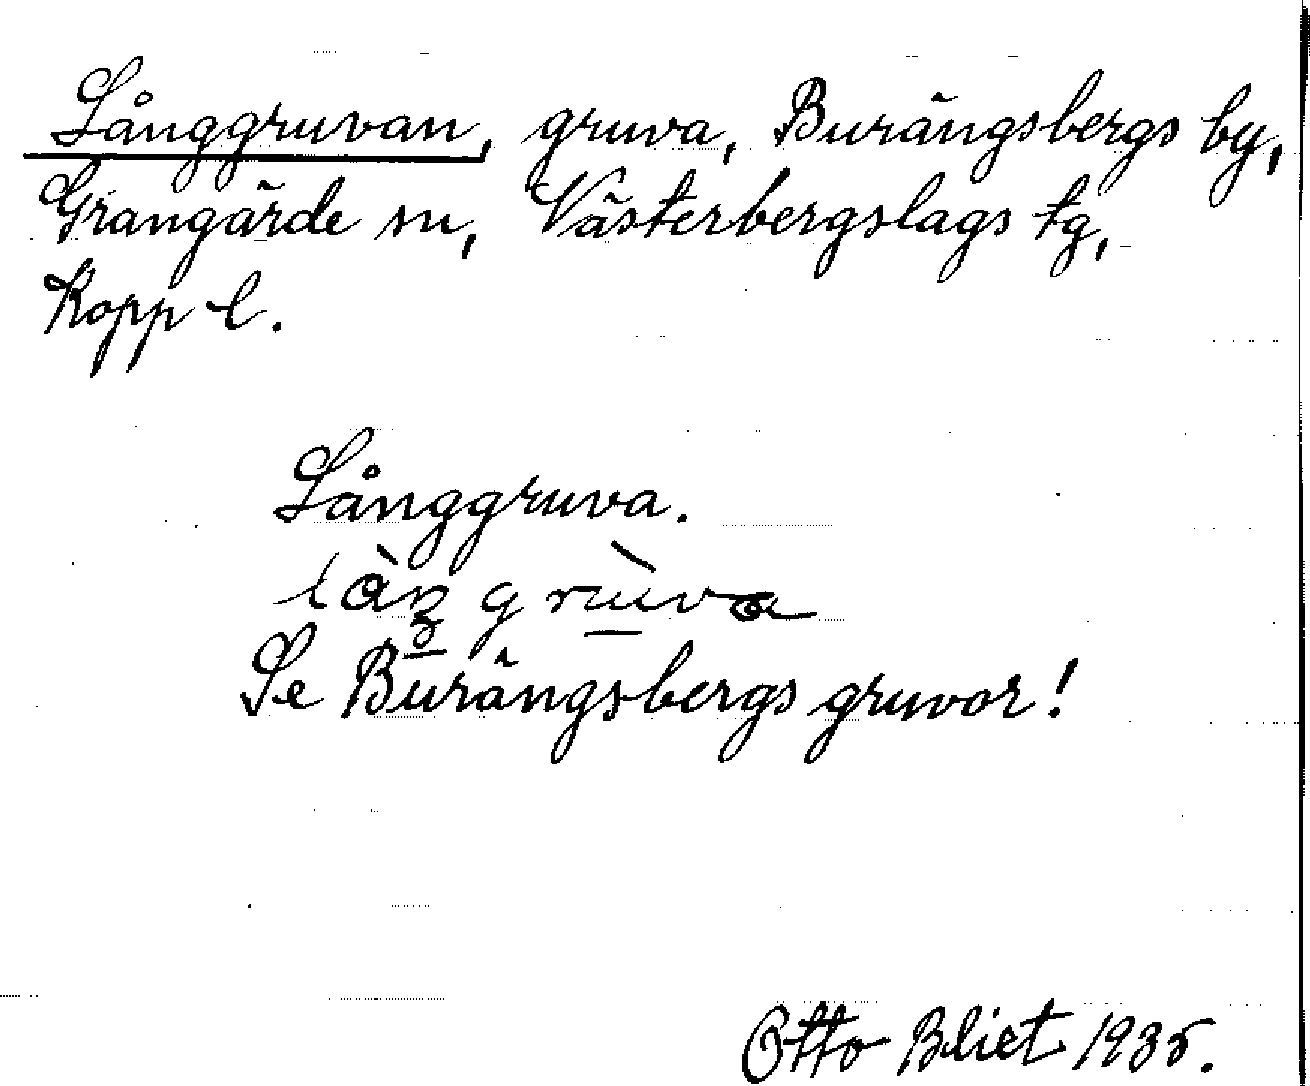 Långgruvan, gruva, Burängsbergs by,
Grangärde sn, Västerbergslags tg,
Kopp l.
Långgruva.
Se Burängsbergs gruvor!
Otto Bliet 1935.